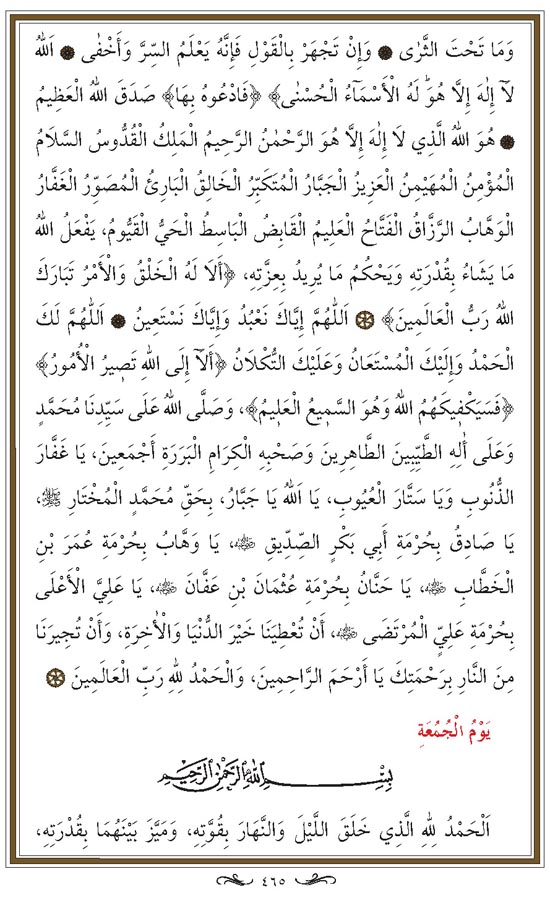 وَمَا تَحْتَ الثَّرٰى ۞ وَإِنْ تَجْهَرْ بِالْقَوْلِ فَإِنَّهُ يَعْلَمُ السِّرَّ وَأَخْفٰى ۞ اَللّٰهُ
لَآ إِلٰهَ إِلَّا هُوَ لَهُ الْأَسْمَآءُ الْحُسْنٰى﴾ ﴿فَادْعُوهُ بِهَا﴾ صَدَقَ اللهُ الْعَظِيمُ
۞ هُوَ اللهُ الَّذِي لَا إِلٰهَ إِلَّا هُوَ الرَّحْمٰنُ الرَّحِيمُ الْمَلِكُ الْقُدُّوسُ السَّلَامُ
الْمُؤْمِنُ الْمُهَيْمِنُ الْعَزِيزُ الْجَبَّارُ الْمُتَكَبِّرُ الْخَالِقُ الْبَارِئُ الْمُصَوِّرُ الْغَفَّارُ
الْوَهَّابُ الرَّزَّاقُ الْفَتَّاحُ الْعَلِيمُ الْقَابِضُ الْبَاسِطُ الْحَيُّ الْقَيُّومُ، يَفْعَلُ اللهُ
مَا يَشَاءُ بِقُدْرَتِهِ وَيَحْكُمُ مَا يُرِيدُ بِعِزَّتِهِ، ﴿أَلَا لَهُ الْخَلْقُ وَالْأَمْرُ تَبَارَكَ
اللهُ رَبُّ الْعَالَمِينَ﴾ ۞ اَللّٰهُمَّ إِيَّاكَ نَعْبُدُ وَإِيَّاكَ نَسْتَعِينُ ۞ اَللّٰهُمَّ لَكَ
الْحَمْدُ وَإِلَيْكَ الْمُسْتَعَانُ وَعَلَيْكَ التُّكْلَانُ ﴿أَلَآ إِلَى اللهِ تَصِيرُ الْأُمُورُ﴾
﴿فَسَيَكْفِيكَهُمُ اللهُ وَهُوَ السَّمِيعُ الْعَلِيمُ﴾، وَصَلَّى اللهُ عَلَى سَيِّدِنَا مُحَمَّدٍ
وَعَلَى أٰلِهِ الطَّيِّبِينَ الطَّاهِرِينَ وَصَحْبِهِ الْكِرَامِ الْبَرَرَةِ أَجْمَعِينَ، يَا غَفَّارَ
الذُّنُوبِ وَيَا سَتَّارَ الْعُيُوبِ، يَا اَللهُ يَا جَبَّارُ، بِحَقِّ مُحَمَّدٍ الْمُخْتَارِ ﷺ،
يَا صَادِقُ بِحُرْمَةِ أَبِي بَكْرٍ الصِّدِّيقِ ؓ، يَا وَهَّابُ بِحُرْمَةِ عُمَرَ بْنِ
الْخَطَّابِ ؓ، يَا حَنَّانُ بِحُرْمَةِ عُثْمَانَ بْنِ عَفَّانَ ؓ، يَا عَلِيَّ الْأَعْلَى
بِحُرْمَةِ عَلِيٍّ الْمُرْتَضَى ؓ، أَنْ تُعْطِيَنَا خَيْرَ الدُّنْيَا وَالْأٰخِرَةِ، وَأَنْ تُجِيرَنَا
مِنَ النَّارِ بِرَحْمَتِكَ يَا أَرْحَمَ الرَّاحِمِينَ، وَالْحَمْدُ لِلّٰهِ رَبِّ الْعَالَمِينَ ۞
يَوْمُ الْجُمُعَةِ
بِسْمِ اللهِ الرَّحْمٰنِ الرَّحِيمِ
اَلْحَمْدُ لِلّٰهِ الَّذِي خَلَقَ اللَّيْلَ وَالنَّهَارَ بِقُوَّتِهِ، وَمَيَّزَ بَيْنَهُمَا بِقُدْرَتِهِ،
٤٦٥